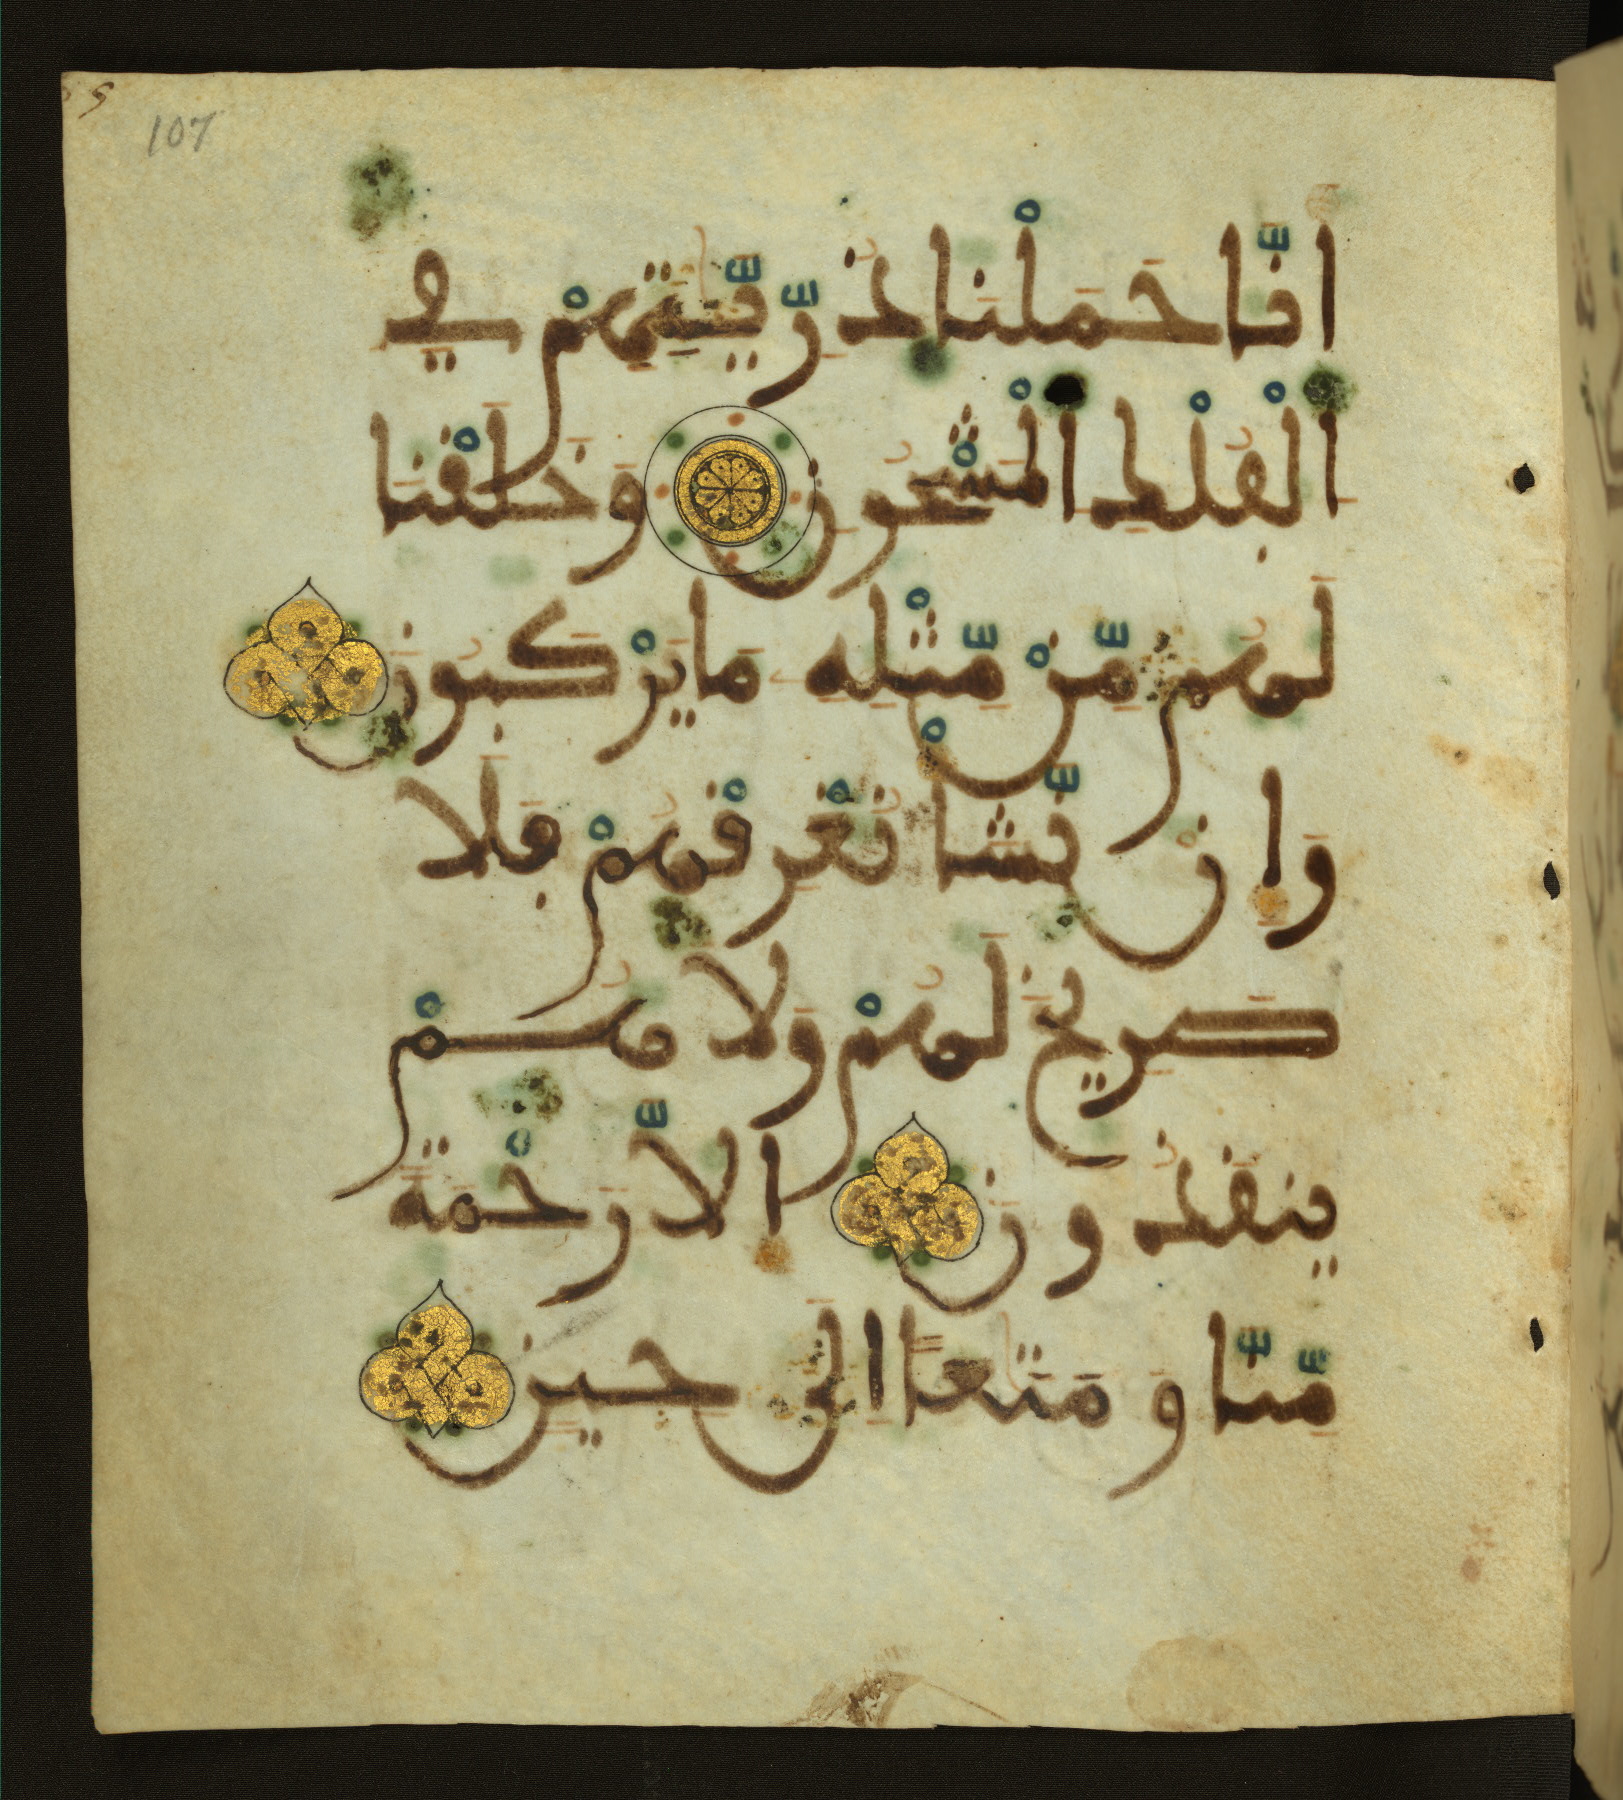 107
اَنَّا حَمَلْنَا ذُرِّيَّتِهِمْ فِي
الْفُلْكِ الْمَشْحُونِ وَخَلَقْنَا
لَهُم مِّنْ مِّثْلِهِ مَا يَرْكَبُونَ
وَاِن نَّشَأْ نُغْرِقْهُمْ فَلَا
صَرِيخَ لَهُمْ وَلَا هُمْ
يُنقَذُونَ اِلَّا رَحْمَةً
مِّنَّا وَمَتَٰعًا اِلَى حِينٍ